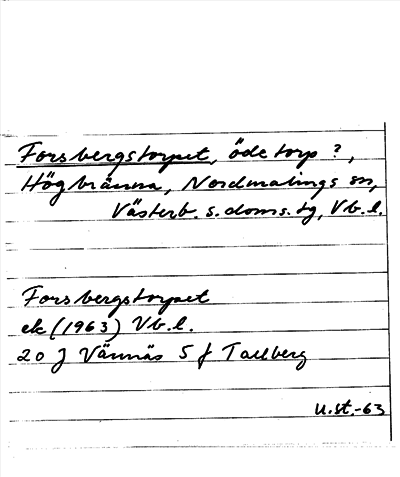 Forsbergstorpet, öde torp ?,
Högbränna, Nordmalings sn,
Västerb. s. doms. tg, Vb. l.
Forsbergstorpet
ek (1963) Vb. l.
20 J Vännäs 5 f Tallberg
U.St.-63